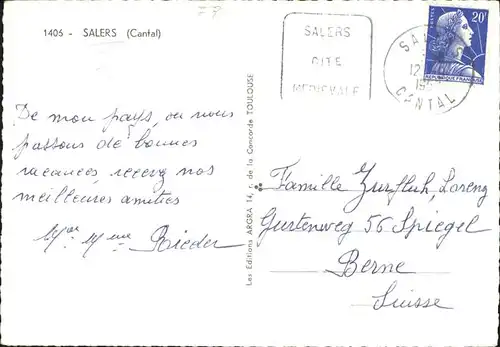 78
1406 - SALERS (Cantal)
SALERS
CITE
MEDIEVALE
20F
REPUBLIQUE FRANÇAISE
CANTAL
De mon pays, où nous
passons de bonnes
vacances, recevez nos
meilleures amitiés
Mr Mme Rieder
Les Editions ARGRA 14, r. de la Concorde TOULOUSE
Famille Zurfluh, Lorenz
Gurtenweg 56 Spiegel
Berne
Suisse